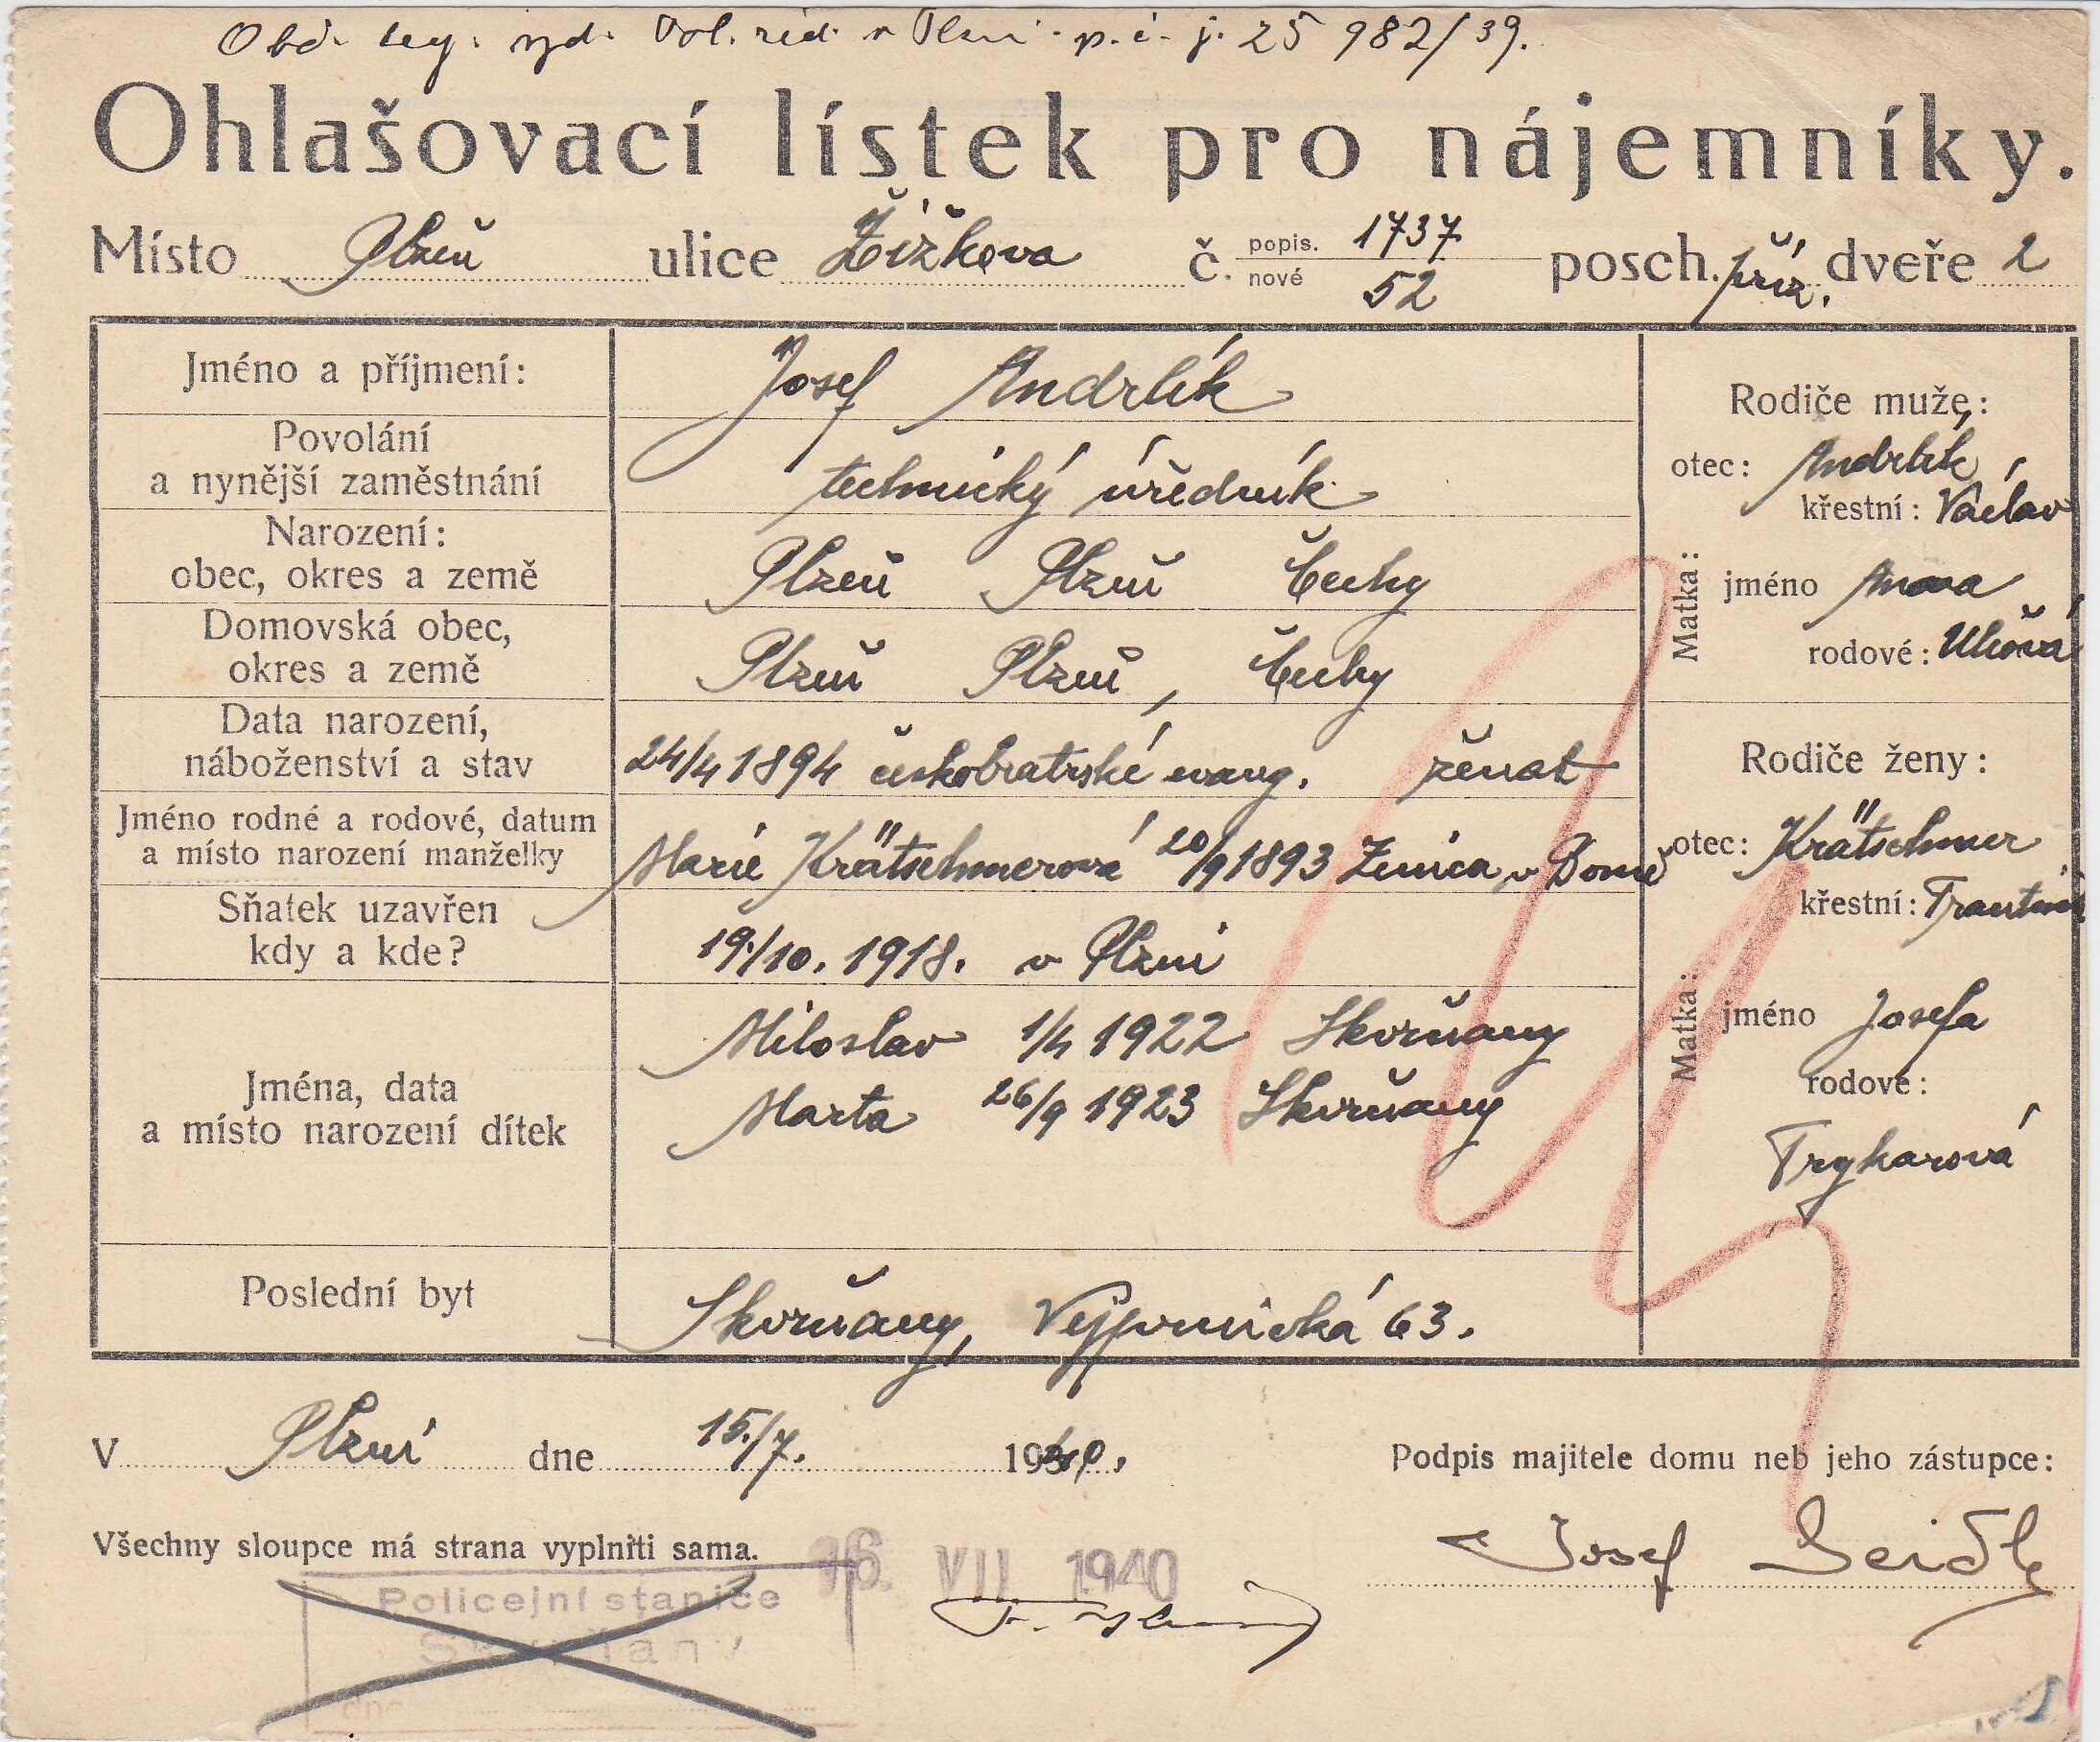 Obč. leg. vyd. Pol. řed. v Plzni p. č. j. 25 982/39.
Ohlašovací lístek pro nájemníky.
Místo Plzeň ulice Žižkova č. popis. 1737 nové 52 posch. příz. dveře 2
Jméno a příjmení: Josef Andrlík
Povolání
a nynější zaměstnání technický úředník
Narození:
obec, okres a země Plzeň Plzeň Čechy
Domovská obec,
okres a země Plzeň Plzeň, Čechy
Data narození,
náboženství a stav 24/4 1894 českobratrské evang. ženat
Jméno rodné a rodové, datum
a místo narození manželky Marie Krätschmerová 20/9 1893 Zenica v Bosně
Sňatek uzavřen
kdy a kde? 19./10. 1918. v Plzni
Jména, data
a místo narození dítek
Miloslav 1/4 1922 Skvrňany
Marta 26/9 1923 Skvrňany
Poslední byt Skvrňany, Vejprnická 63.
Rodiče muže:
otec: Andrlík
křestní: Václav
Matka:
jméno Anna
rodové:
Rodiče ženy:
otec: Krätschmer
křestní:
Matka:
jméno Josefa
rodové:
Trykarová
V Plzni dne 15./7. 1940.
Podpis majitele domu neb jeho zástupce:
Všechny sloupce má strana vyplniti sama.
Josef Seidl
16. VII 1940
Policejní stanice
Skvrňany
dne